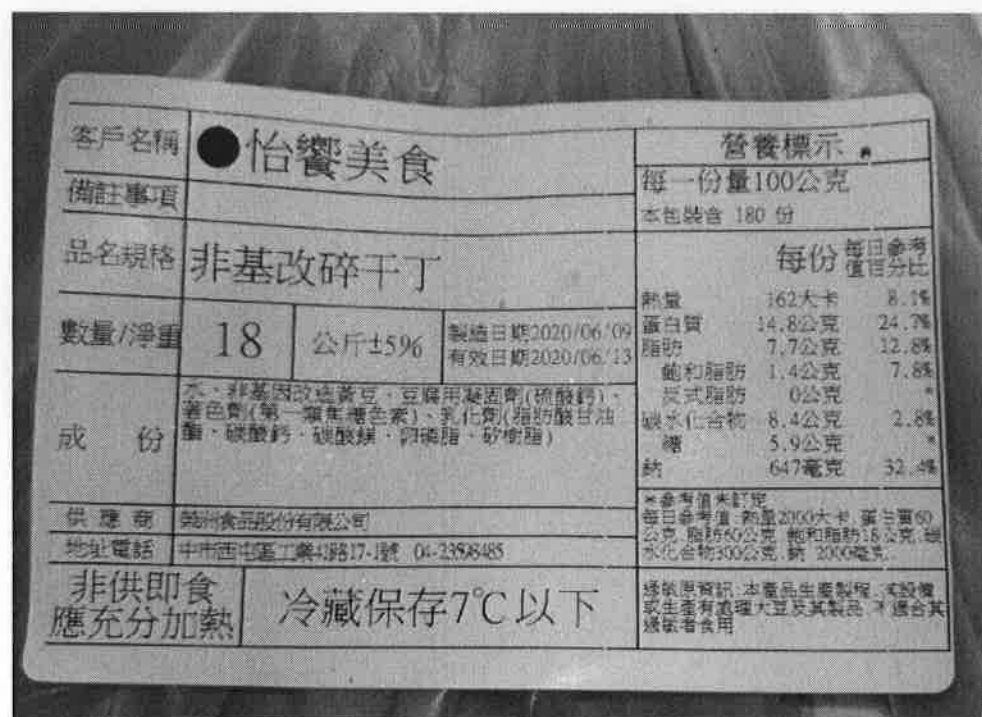 客戶名稱 ●怡饗美食
備註事項
品名規格 非基改碎干丁
數量/淨重 18 公斤±5% 製造日期2020/06/09
有效日期2020/06/13
成 份 水、非基因改造黃豆、豆腐用凝固劑(硫酸鈣)、
著色劑(第一類焦糖色素)、乳化劑(脂肪酸甘油
酯、碳酸鈣、碳酸鎂、卵磷脂、矽樹脂)
供應商 食品股份有限公司
地址電話 中市西屯區工業41路17-1號 04-23598485
非供即食
應充分加熱
冷藏保存7℃以下
營養標示
每一份量100公克
本包裝含 180 份
每份 每日參考
值百分比
熱量 162大卡 8.1%
蛋白質 14.8公克 24.7%
脂肪 7.7公克 12.8%
飽和脂肪 1.4公克 7.8%
反式脂肪 0公克 *
碳水化合物 8.4公克 2.8%
糖 5.9公克 *
鈉 647毫克 32.4%
*參考值未訂定
每日參考值:熱量2000大卡、蛋白質60
公克、脂肪60公克、飽和脂肪18公克、碳
水化合物300公克、鈉 2000毫克
過敏原資訊:本產品生產製程,其設備
或生產有處理大豆及其製品,不適合其
過敏者食用